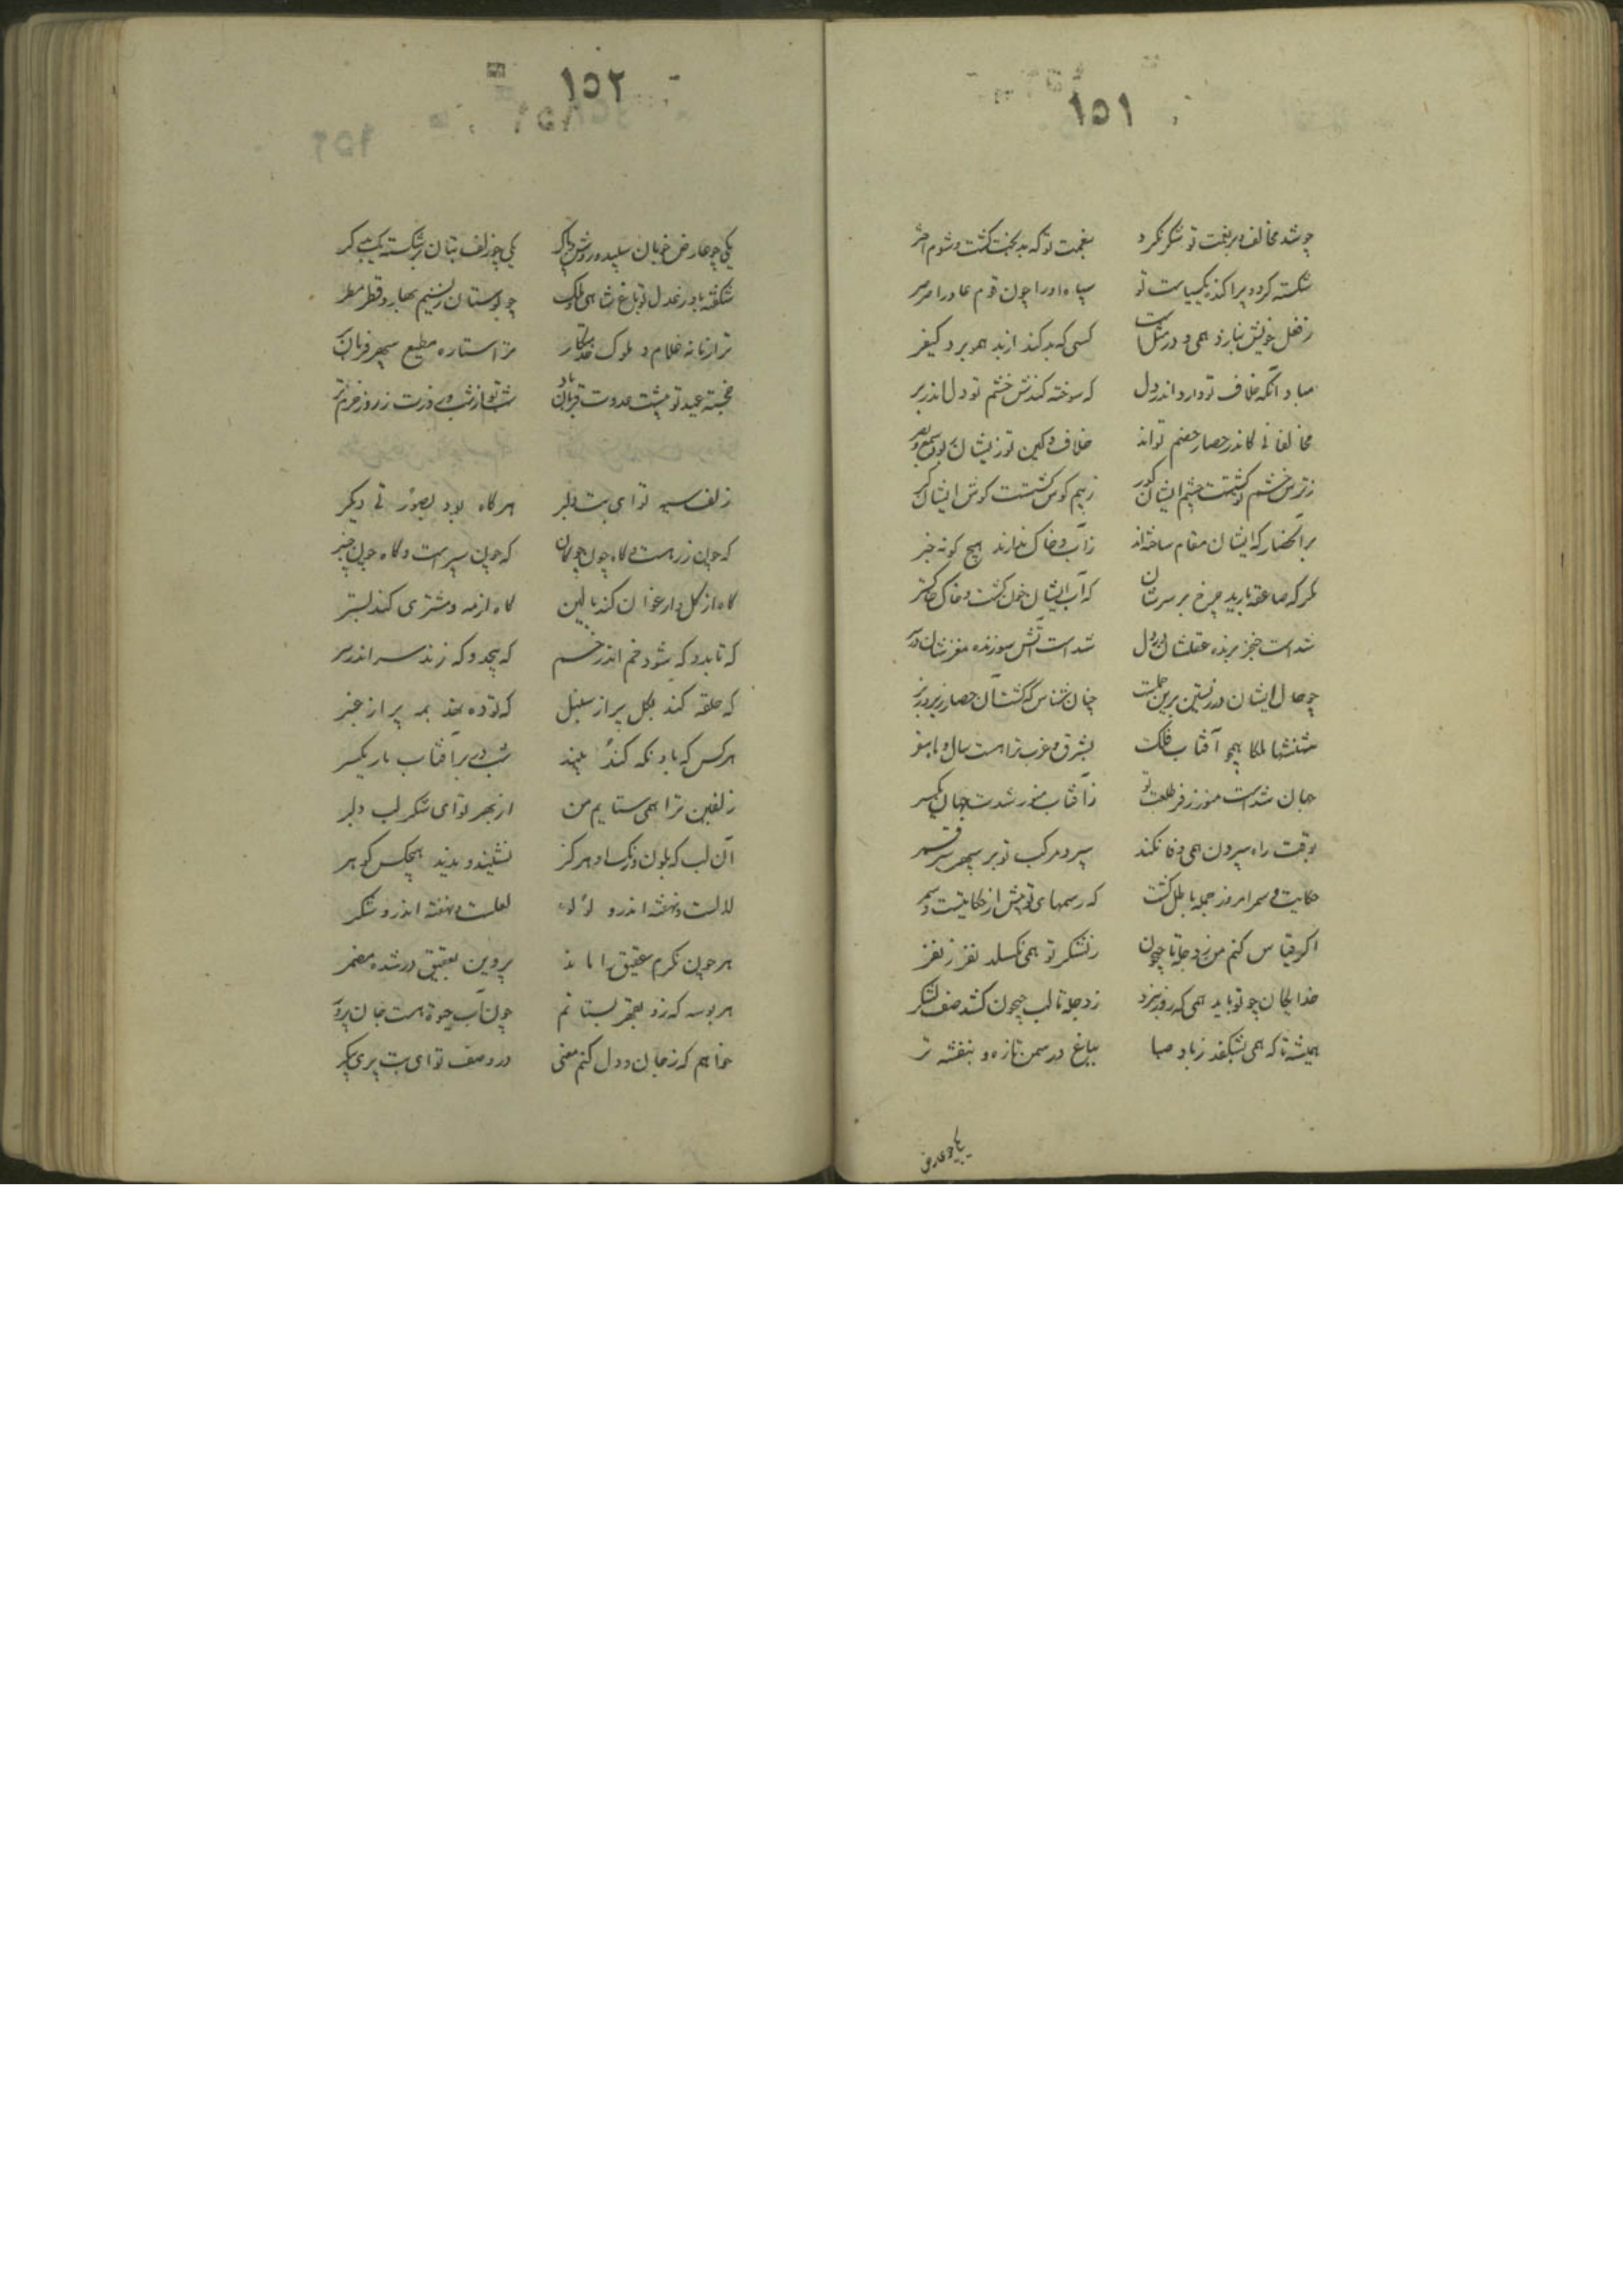 ١٥١
چو شد مخالف و بر نعمت تو شکر نکرد بنعمت تو که بدبخت گشت و شوم اختر
شکسته کرد و پراکند یک سیاست تو سپاه او را چون قوم عاد را صرصر
ز فعل خویش نیازرد همی و در مثل است کسی که بد کند از بد همو برد کیفر
مباد آنکه خلاف تو دارد اندر دل که سوخته کندش خشم تو دل اندر بر
مخالفانی کاندر حصار خصم تواند خلاف و کین تو زیشان ربود سمع و بصر
ز ترس خشم تو گشتست چشم ایشان کور ز بیم کوس تو گشتست گوش ایشان کر
بر آن حصار که ایشان مقام ساخته‌اند ز آب و خاک ندارند هیچ گونه خبر
مگر که صاعقه بارید چرخ بر سرشان که آب ایشان خون گشت و خاک خاکستر
شد است خنجر برنده عقلشان در دل شد است آتش سوزنده مغزشان در سر
چو حال ایشان در زیستن برین جملست چنان شناس که گشت آن حصار زیر و زبر
شهنشها ملکا همچو آفتاب فلک بشرق و غرب ترا هست سال و ماه سفر
جهان شد است منور ز فر طلعت تو ز آفتاب منور شدست جهان یکسر
بوقت راه سپردن همی وفا نکند سپر و مرکب تو بر سپهر سیر قمر
حکایت و سمر امروز جمله باطل گشت که رسمهای تو بیش از حکایتست و سمر
اگر قیاس کنم من ز دجله تا جیحون ز لشکر تو همی نگسلد نفر ز نفر
خدایگان چو تو باید همی که روز نبرد ز دجله تا لب جیحون کشد صف لشکر
همیشه تا که همی بشکفد ز باد صبا بباغ در سمن تازه و بنفشه تر
یکی چو عارض
١٥٢
یکی چو عارض خوبان سپید و روشن و پاک یکی چو زلف بتان بر شکسته یک بدگر
شکفته باد ز عدل تو باغ شاهی و ملک چو بوستان ز نسیم بهار و قطر مطر
ترا زمانه غلام و ملوک خدمتکار ترا ستاره مطیع و سپهر فرمان بر
خجسته عید تو پیشت عدوت قربان باد شب تو از شب دی خوبتر ز روز خرم تر
زلف سیه تو ای بت دلبر هر گاه بود بصورتی دیگر
که چون زره است و گاه چون چوگان که چون سپر است و گاه چون چنبر
گاه از گل و ارغوان کند بالین گاه از مه و مشتری کند بستر
که تابد و که شود خم اندر خم که پیچد و که زند سر اندر سر
که حلقه کند بگل بر از سنبل که توده نهد بمه بر از عنبر
هر کس که باو نگه کند بیند شب دی بر آفتاب بار یکسر
زلفین ترا همی ستایم من از بهر تو ای شکر لب دلبر
آن لب که بلون و رنگ او هرگز نشنید و ندید هیچکس گوهر
لالست و نهفته اندرو لؤلؤ لعلست و نهفته اندرو شکر
هر چون نگرم عقیق را ماند پروین بعقیق در شده مضمر
هر بوسه که زو بقهر بستانم چون آب حیوة هست جان پرور
خواهم که ز جان و دل کنم معنی در وصف تو ای بت پری پیکر